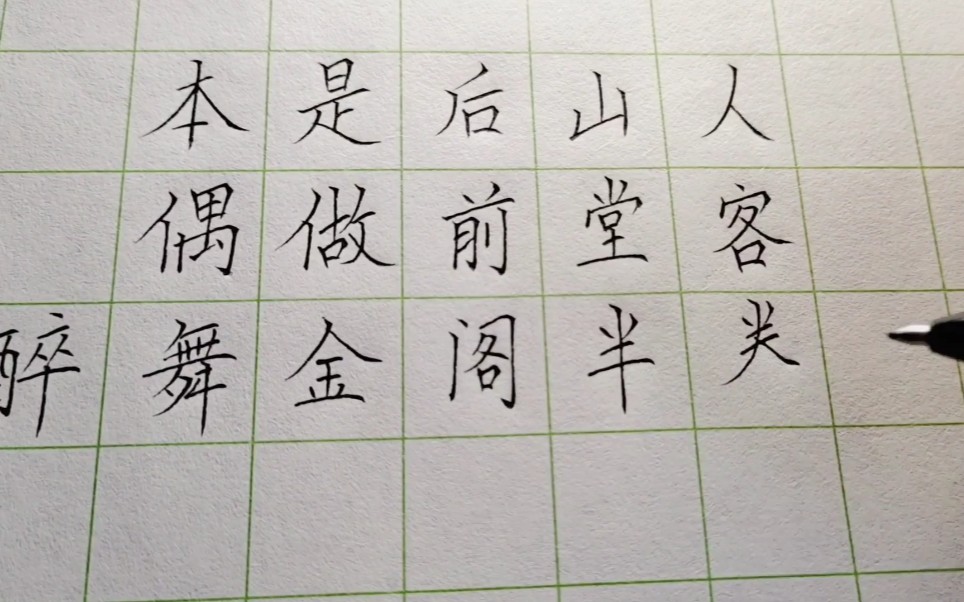 本是后山人
偶做前堂客
醉舞金阁半